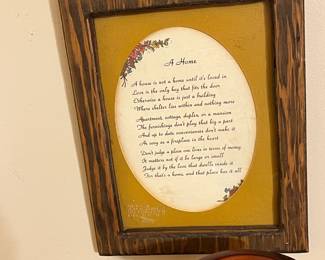 A Home
A house is not a home until it's loved in
Love is the only key that fits the door
Otherwise a house is just a building
Where shelter lies within and nothing more
Apartment, cottage, duplex, or a mansion
The furnishings don't play that big a part
And up to date conveniences don't make it
As cozy as a fireplace in the heart
Don't judge a place one lives in terms of money
It matters not if it be large or small
Judge it by the love that dwells inside it
For that's a home, and that place has it all